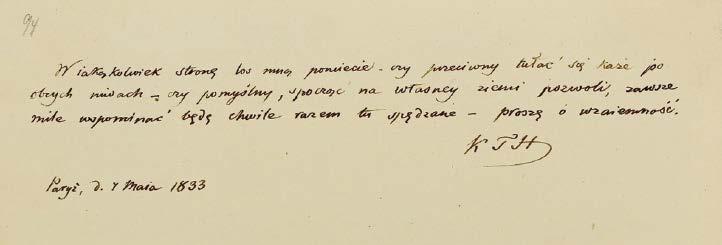 94
W iakąkolwiek stronę los mną pomiecie – czy przeciwny tułać się każe po
obcych niwach – czy pomyślny, spocząć na własney ziemi pozwoli, zawsze
mile wspominać będę chwile razem tu spędzane – proszę o wzaiemność.
K T H
Paryż, d. 7 Maia 1833